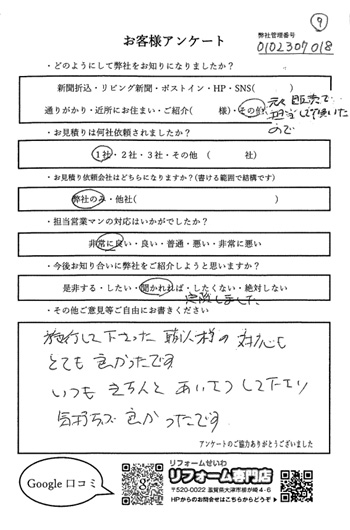 ⑨
お客様アンケート
弊社管理番号
0102307018
・どのようにして弊社をお知りになりましたか?
新聞折込・リビング新聞・ポストイン・HP・SNS( )
通りがかり・近所にお住まい・ご紹介( 様)・その他
担当して頂いた
ので
・お見積りは何社依頼されましたか?
1社・2社・3社・その他 ( 社)
・お見積り依頼会社はどちらになりますか?(書ける範囲で結構です)
弊社のみ・他社( )
・担当営業マンの対応はいかがでしたか?
非常に良い・良い・普通・悪い・非常に悪い
・今後お知り合いに弊社をご紹介しようと思いますか?
是非する・したい・聞かれれば・したくない・絶対しない
・その他ご意見等ご自由にお書きください
施行して下さった職人様の対応も
とても良かったです
いつもきちんとあいさつして下さり
気持ちが良かったです
アンケートのご協力ありがとうございました
Google 口コミ
リフォームせいわ
リフォーム専門店
〒520-0022 滋賀県大津市柳が崎4-6
HPからのお問合せはこちらからどうぞ